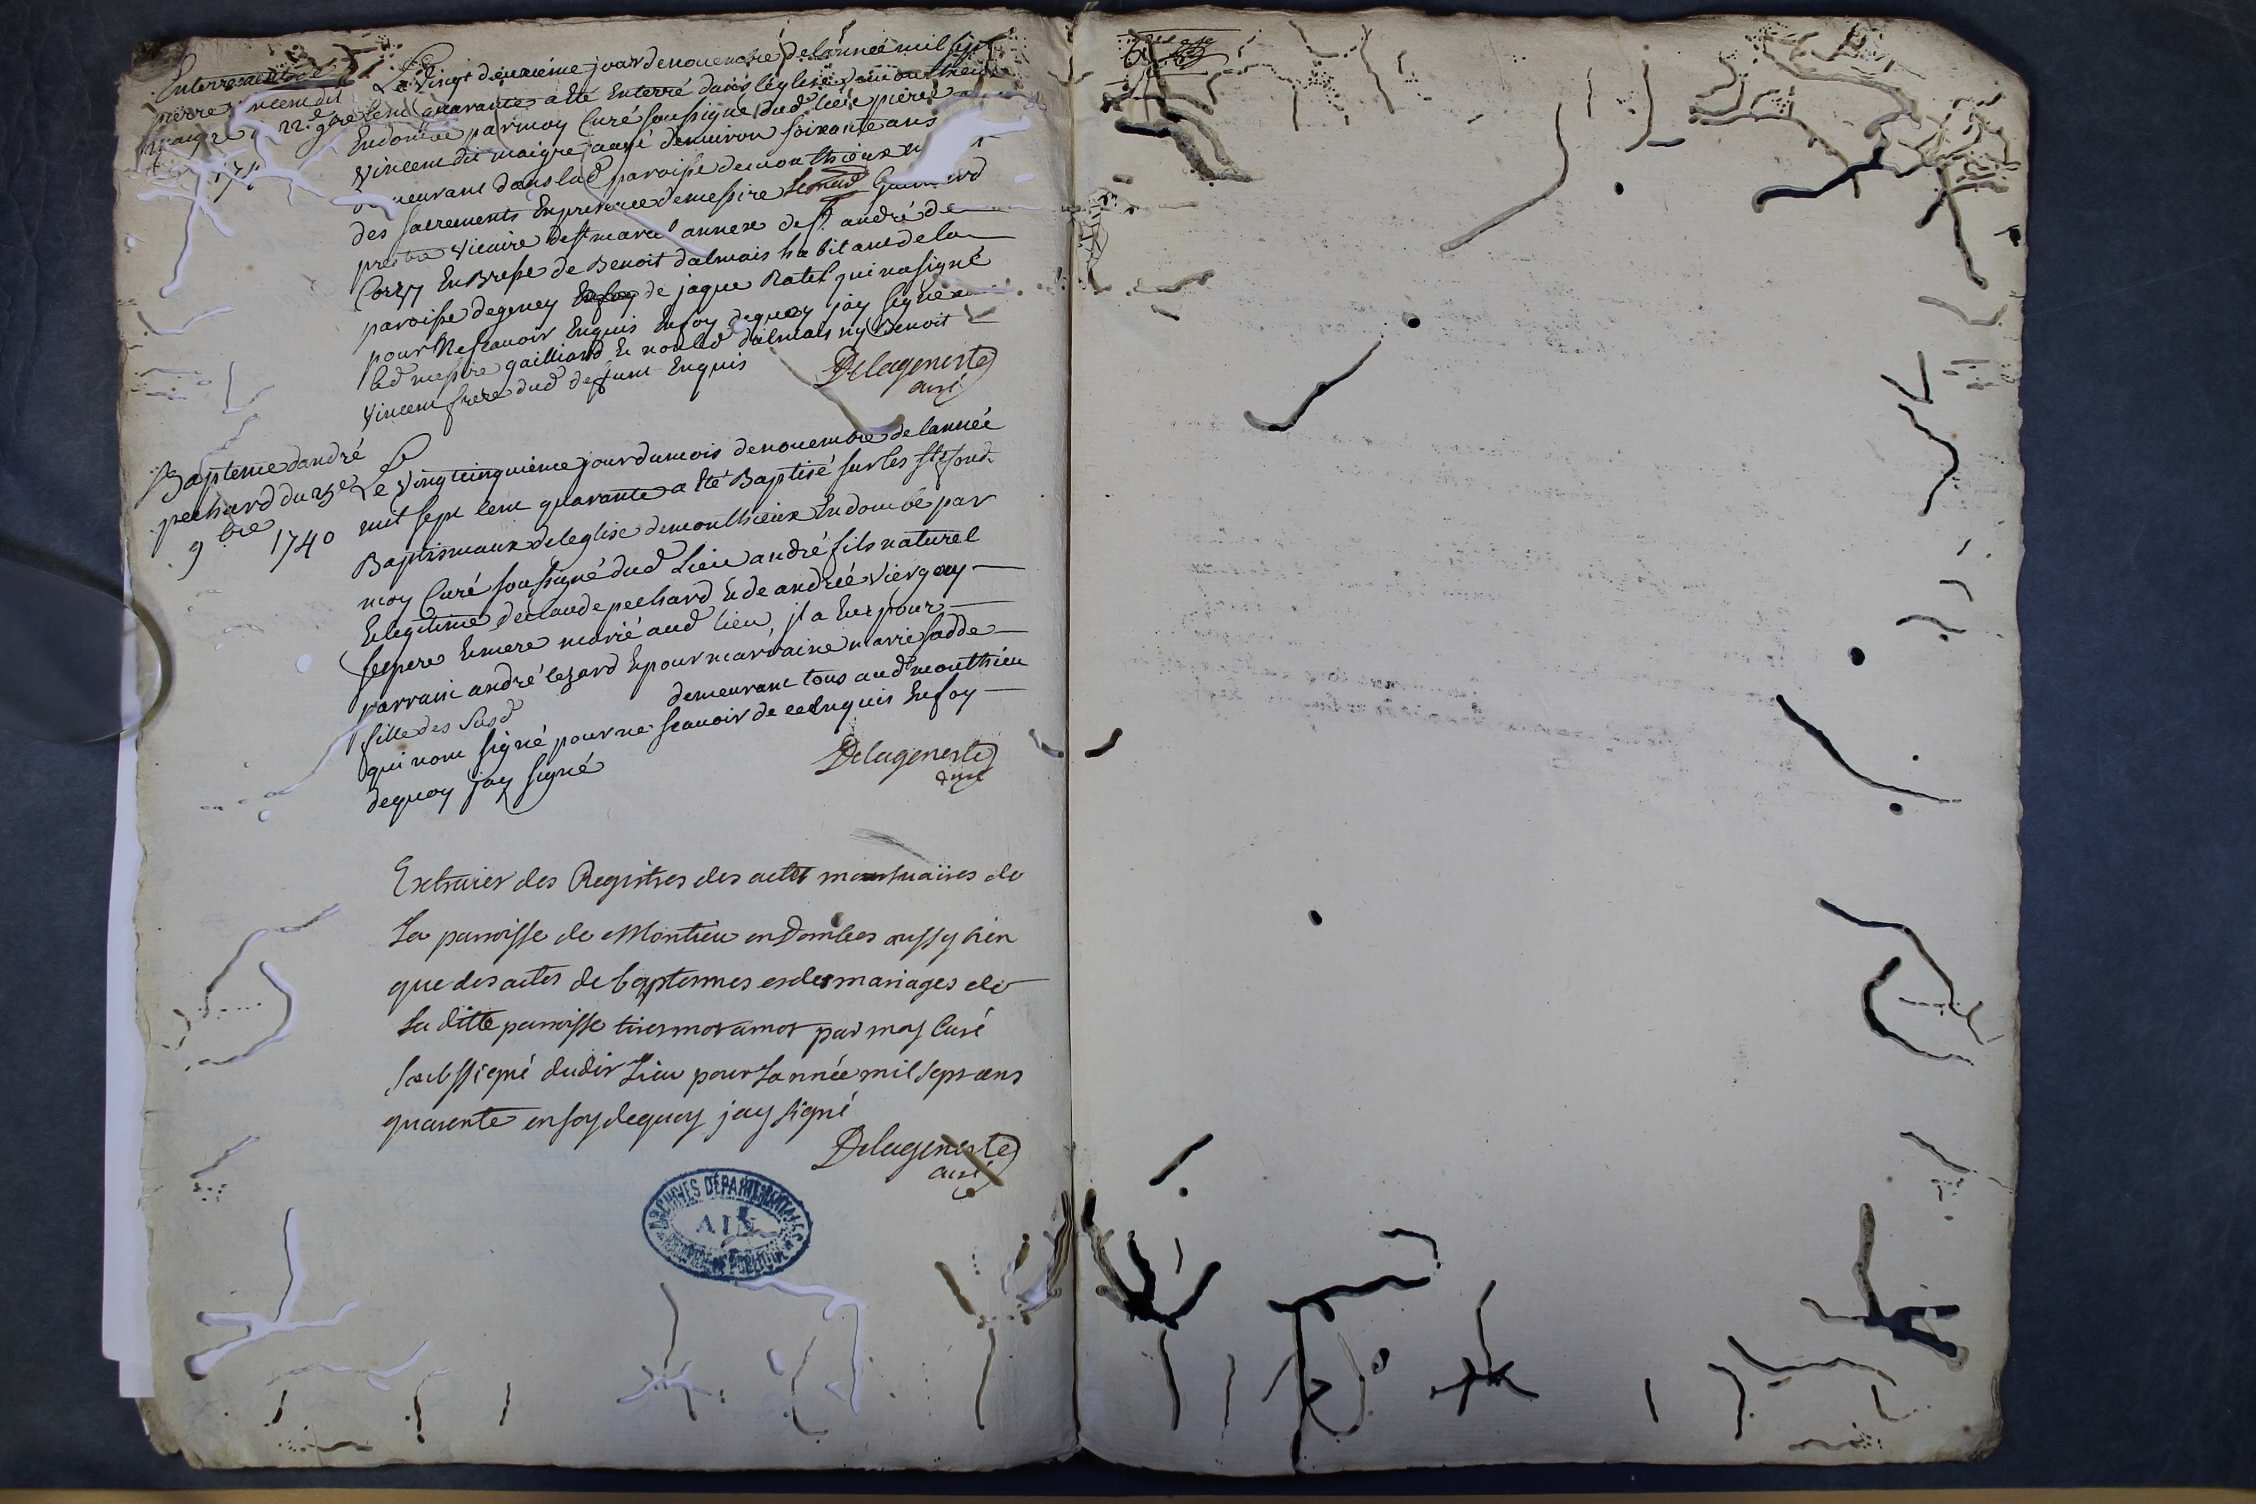 Enterrement de
pierre vincent dit
maigre 22.e 9bre
174
Le vingt deuxiéme jour denouembre delannée mil sept
cent quarante a eté Enterré dans léglise demonthieux
Endombe parmoy Curé soussigné dud lieu pierre
vincent dit maigre aagé denuiron soixante ans
demeurant dans lad paroisse demonthieux
des sacrements Enpresence demessire
prestre vicaire dest marcel annexe de st. andré de
Corzy En Bresse de Benoit dalmais habitant dela
paroisse degeney de jaque Ratel qui nasigné
pour Nescauoir Enquis Enfoy dequoy jay signé
led messire gailliard Et non led dalmais ny Benoit
vincent frere dud deffunt Enquis
Delageneste
curé
Bapteme dandré
pechard du 25e
9bre 1740
Le vingtcinquiéme jour dumois denouembre delannée
mil sept cent quarante a été Baptisé surles sts fond.
Baptismaux deleglise demonthieux Endombe par
moy Curé soussigné dud Lieu andré fils naturel
Et legitime declaude pechard Et de andrée viergey
ses pere Et mere marié aud lieu, jl a Eu pour
parrain andré lezard Et pour marraine marie sadde
fille des susd demeurant tous aud monthieu
qui nont signé pour ne scauoir de ce Enquis Enfoy
dequoy jay signé
Delageneste
curé
Extraict des Registres des actes mortuaires de
La paroisse de Montieu en Dombes aussy bien
que des actes de baptesmes et des mariages de
La ditte paroisse tires mot amot par moy Curé
soubssigné dudit Lieu pour Lannée mil sept cens
quarente en foy dequoy jay signé
Delageneste
curé
ARCHIVES DÉPARTEMENTALES
AIN